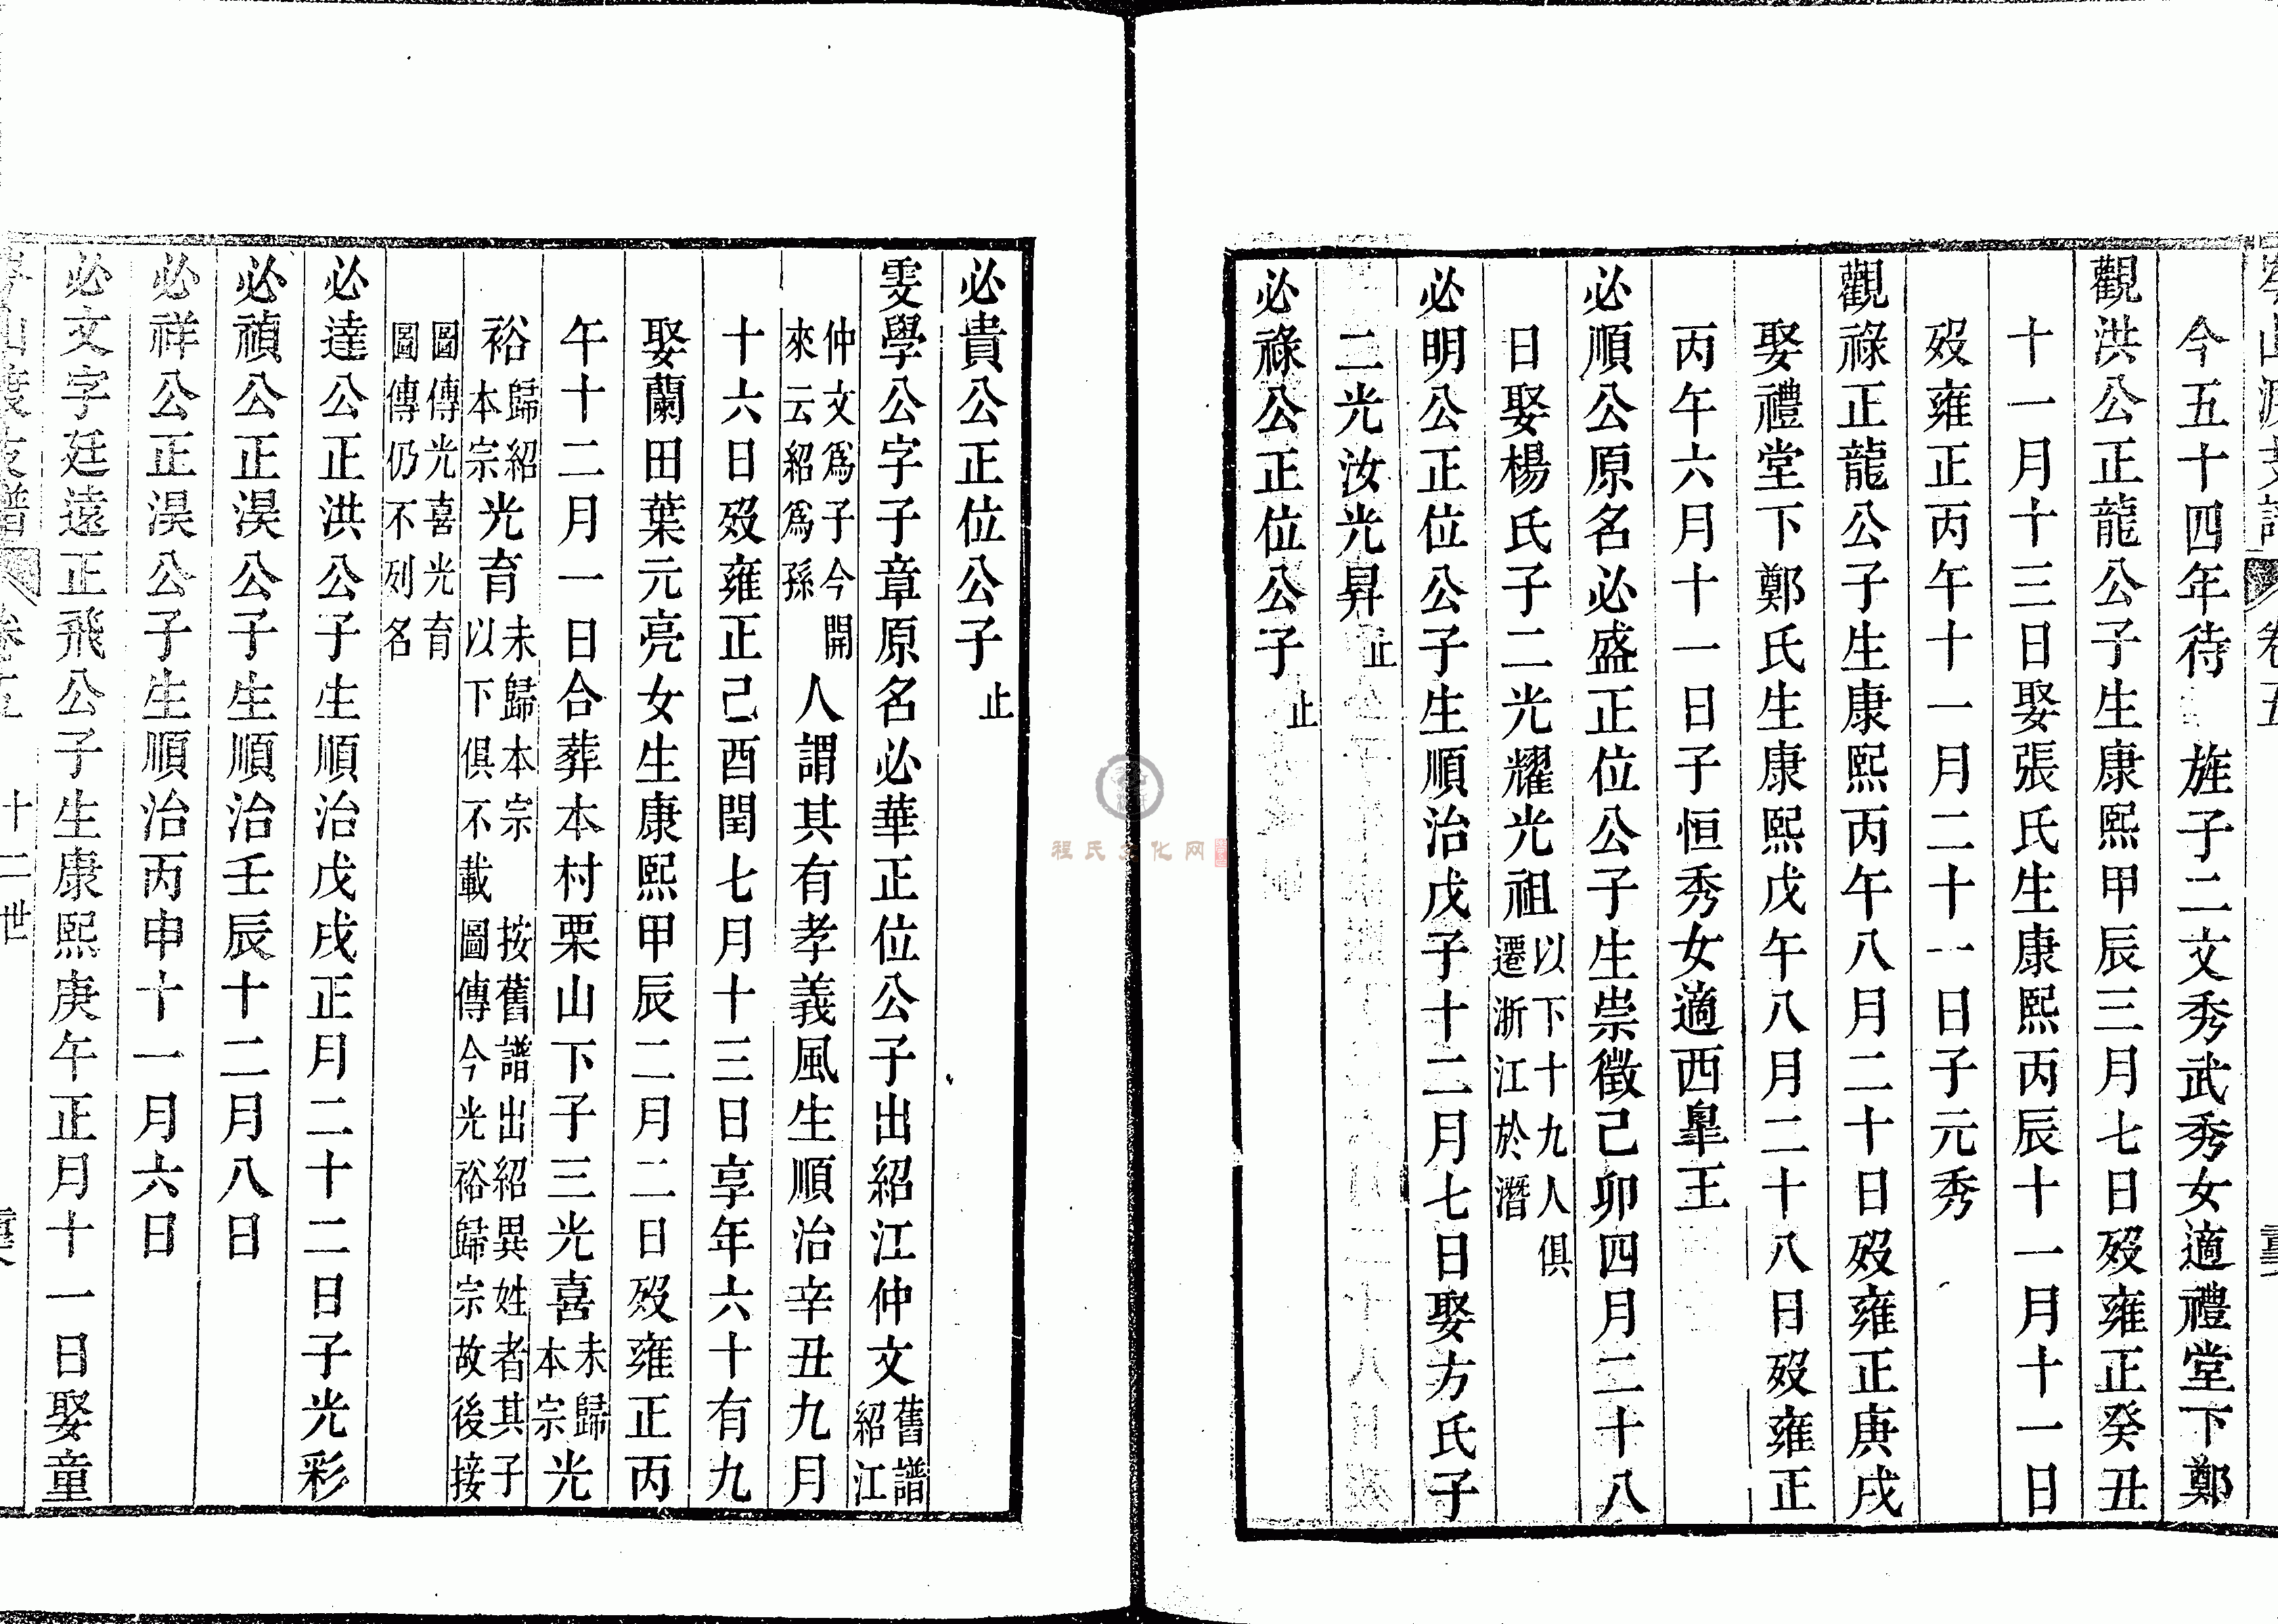 今五十四年待 旌子二文秀武秀女適禮堂下鄭
觀洪公正龍公子生康熙甲辰三月七日歿雍正癸丑
十一月十三日娶張氏生康熙丙辰十一月十一日
歿雍正丙午十一月二十一日子元秀
觀祿正龍公子生康熙丙午八月二十日歿雍正庚戌
娶禮堂下鄭氏生康熙戊午八月二十八日歿雍正
丙午六月十一日子恒秀女適西臯王
必順公原名必盛正位公子生崇徵己卯四月二十八
日娶楊氏子二光耀光祖以下十九人俱遷浙江於潛
必明公正位公子生順治戊子十二月七日娶方氏子
二光汝光昇止
必祿公正位公子止
必貴公正位公子止
雯學公字子章原名必華正位公子出紹江仲文舊譜紹江
仲文爲子今開來云紹爲孫人謂其有孝義風生順治辛丑九月
十六日歿雍正己酉閏七月十三日享年六十有九
娶蘭田葉元亮女生康熙甲辰二月二日歿雍正丙
午十二月一日合葬本村栗山下子三光喜未歸本宗光
裕歸紹本宗光育未歸本宗以下俱不載按舊譜出紹異姓者其子圖傳今光裕歸宗故後接
圖傳光喜光育圖傳仍不列名
必達公正洪公子生順治戊戌正月二十二日子光彩
必禎公正淏公子生順治壬辰十二月八日
必祥公正淏公子生順治丙申十一月六日
必文字廷遠正飛公子生康熙庚午正月十一日娶童
十二世
程氏文化网